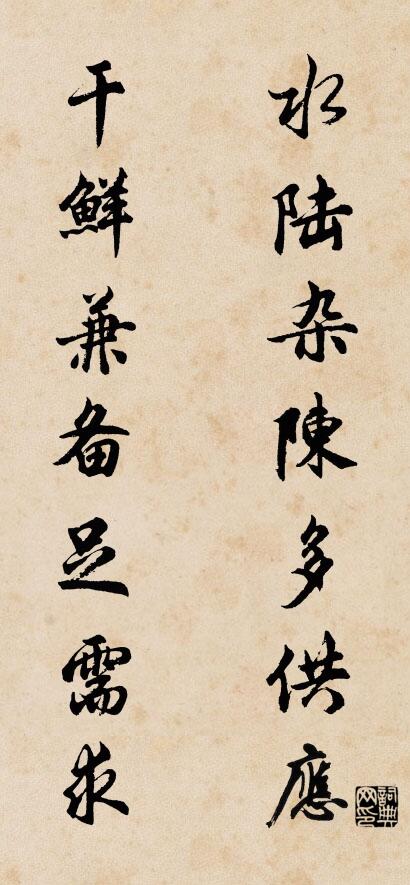 水陆杂陳多供應
干鮮兼备足需求
詞典网印